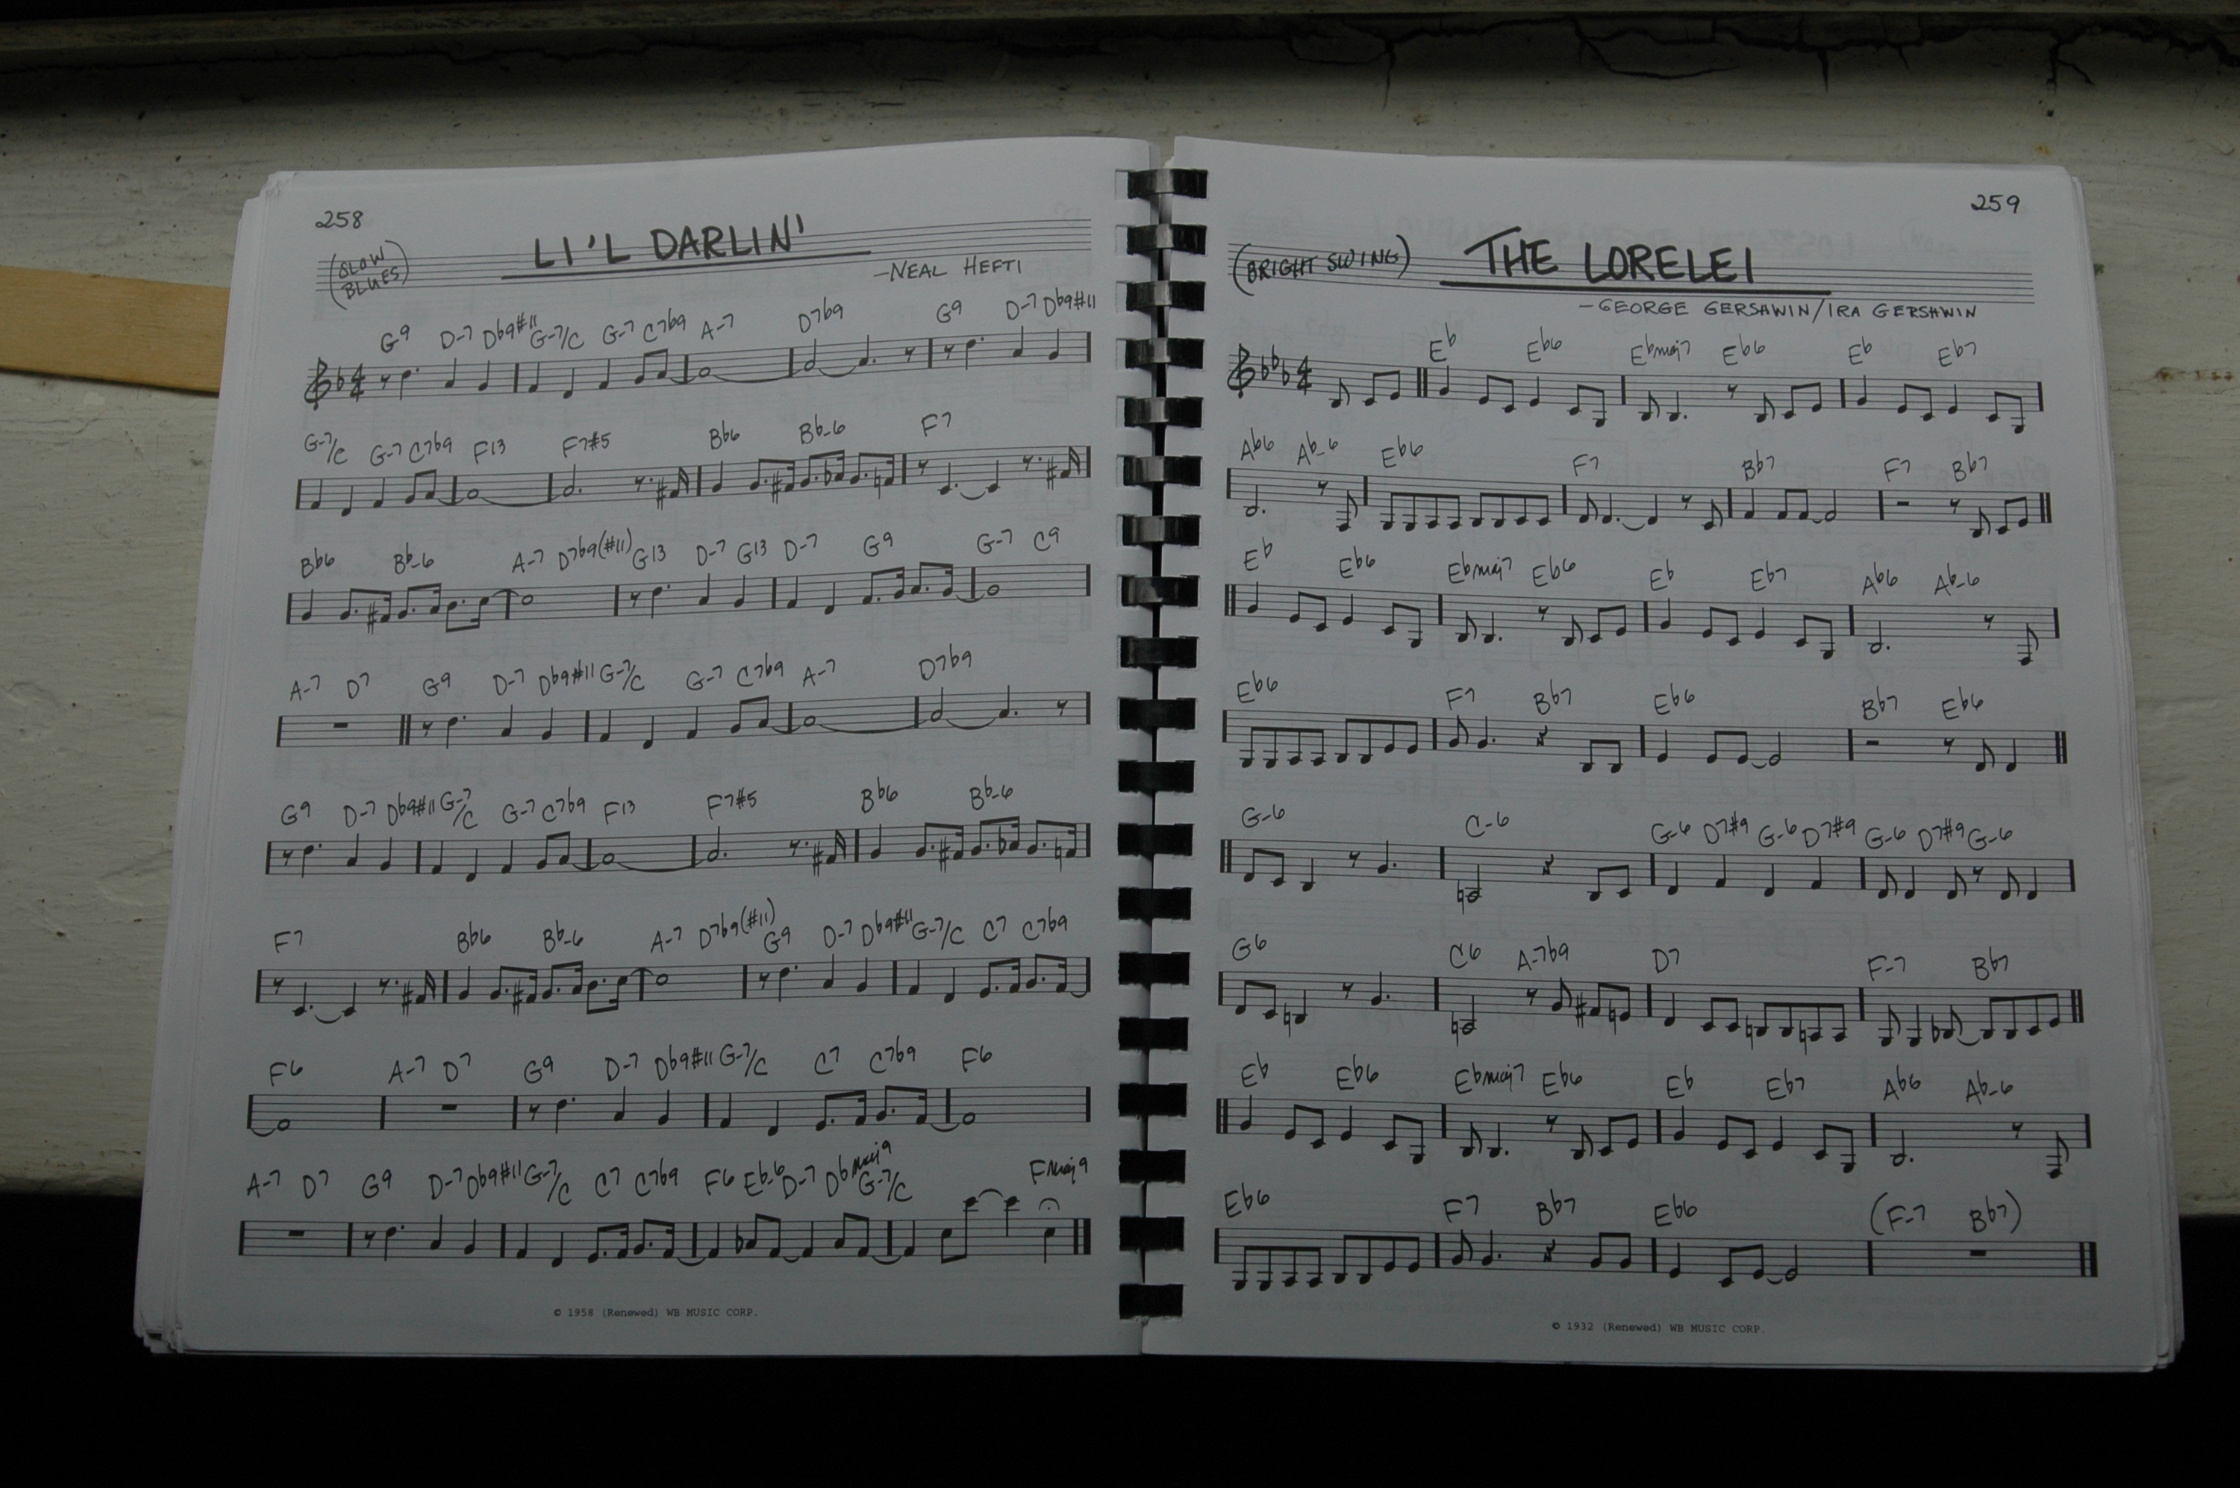 258
(SLOW BLUES)
LI'L DARLIN'
—NEAL HEFTI
G9 D-7 Db9#11 G-7/C G-7 C7b9 A-7 D7b9 G9 D-7 Db9#11
4 4
G-7/C G-7 C7b9 F13 F7#5 Bb6 Bb-6 F7
Bb6 Bb-6 A-7 D7b9(#11) G13 D-7 G13 D-7 G9 G-7 C9
A-7 D7 G9 D-7 Db9#11 G-7/C G-7 C7b9 A-7 D7b9
G9 D-7 Db9#11 G-7/C G-7 C7b9 F13 F7#5 Bb6 Bb-6
F7 Bb6 Bb-6 A-7 D7b9(#11) G9 D-7 Db9#11 G-7/C C7 C7b9
F6 A-7 D7 G9 D-7 Db9#11 G-7/C C7 C7b9 F6
A-7 D7 G9 D-7 Db9#11 G-7/C C7 C7b9 F6 Eb-6 D-7 Dbmaj9 G-7/C Fmaj9
© 1958 (Renewed) WB MUSIC CORP.
259
(BRIGHT SWING)
THE LORELEI
—GEORGE GERSHWIN/IRA GERSHWIN
Eb Eb6 Ebmaj7 Eb6 Eb Eb7
4 4
Ab6 Ab-6 Eb6 F7 Bb7 F7 Bb7
Eb Eb6 Ebmaj7 Eb6 Eb Eb7 Ab6 Ab-6
Eb6 F7 Bb7 Eb6 Bb7 Eb6
G-6 C-6 G-6 D7#9 G-6 D7#9 G-6 D7#9 G-6
G6 C6 A-7b9 D7 F-7 Bb7
Eb Eb6 Ebmaj7 Eb6 Eb Eb7 Ab6 Ab-6
Eb6 F7 Bb7 Eb6 (F-7 Bb7)
© 1932 (Renewed) WB MUSIC CORP.